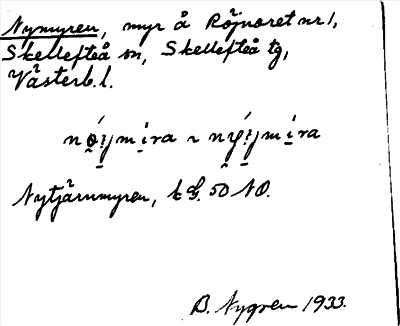 Nymyren, myr å Röjnoret nr 1,
Skellefteå sn, Skellefteå tg,
Västerb. l.
Nytjärnmyren, bl. 50 NO.
B. Nygren 1933.